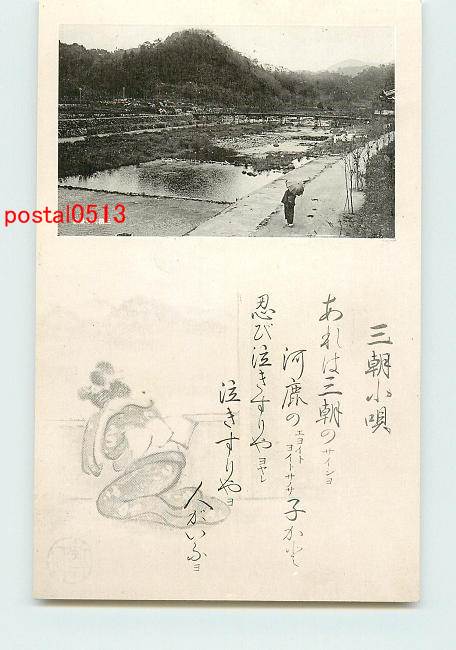 postal0513
三朝小唄
あれは三朝のサイショ
河鹿のエヨイトヨイトサノサ子かと
忍び泣きすりやヨヤレ
泣きすりやヨ
人がいふヨ